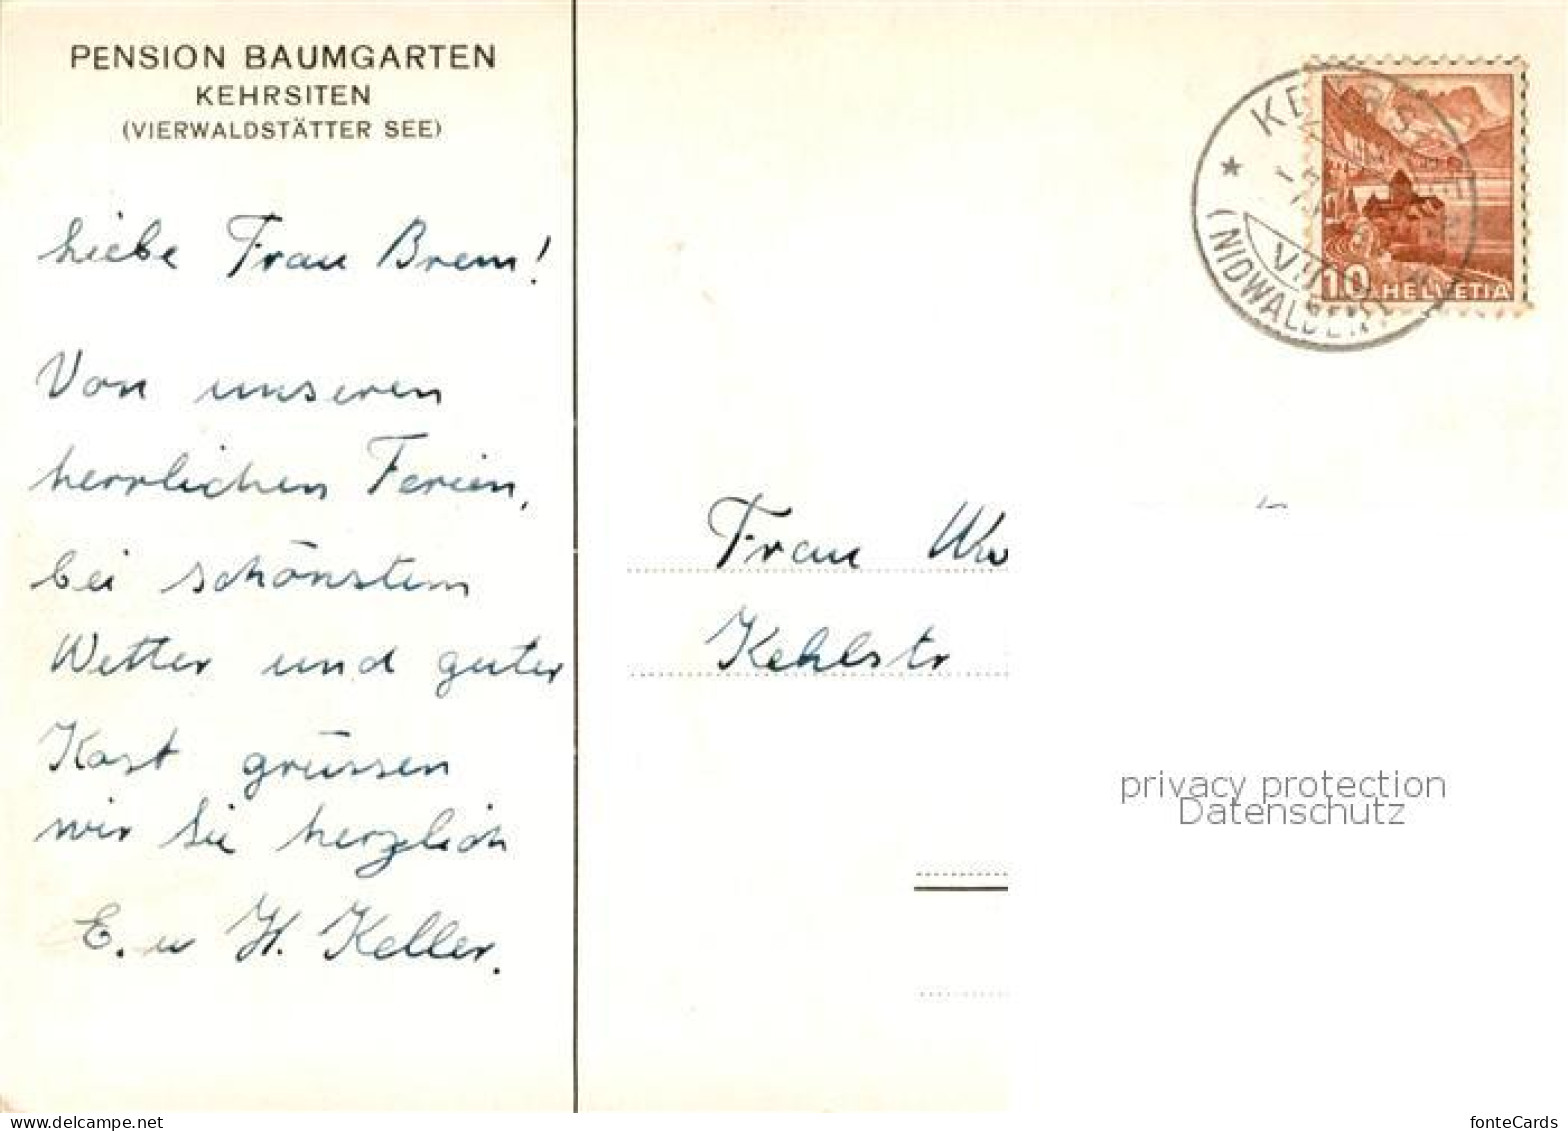 PENSION BAUMGARTEN
KEHRSITEN
(VIERWALDSTÄTTER SEE)
Liebe Frau Brem!
Von unseren
herrlichen Ferien,
bei schönstem
Wetter und guter
Kost grüssen
wir Sie herzlich
E. u H. Keller.
(NIDWALDEN)
10 HELVETIA
Frau
Kehlstr
privacy protection
Datenschutz
www.delcampe.net
fonteCards